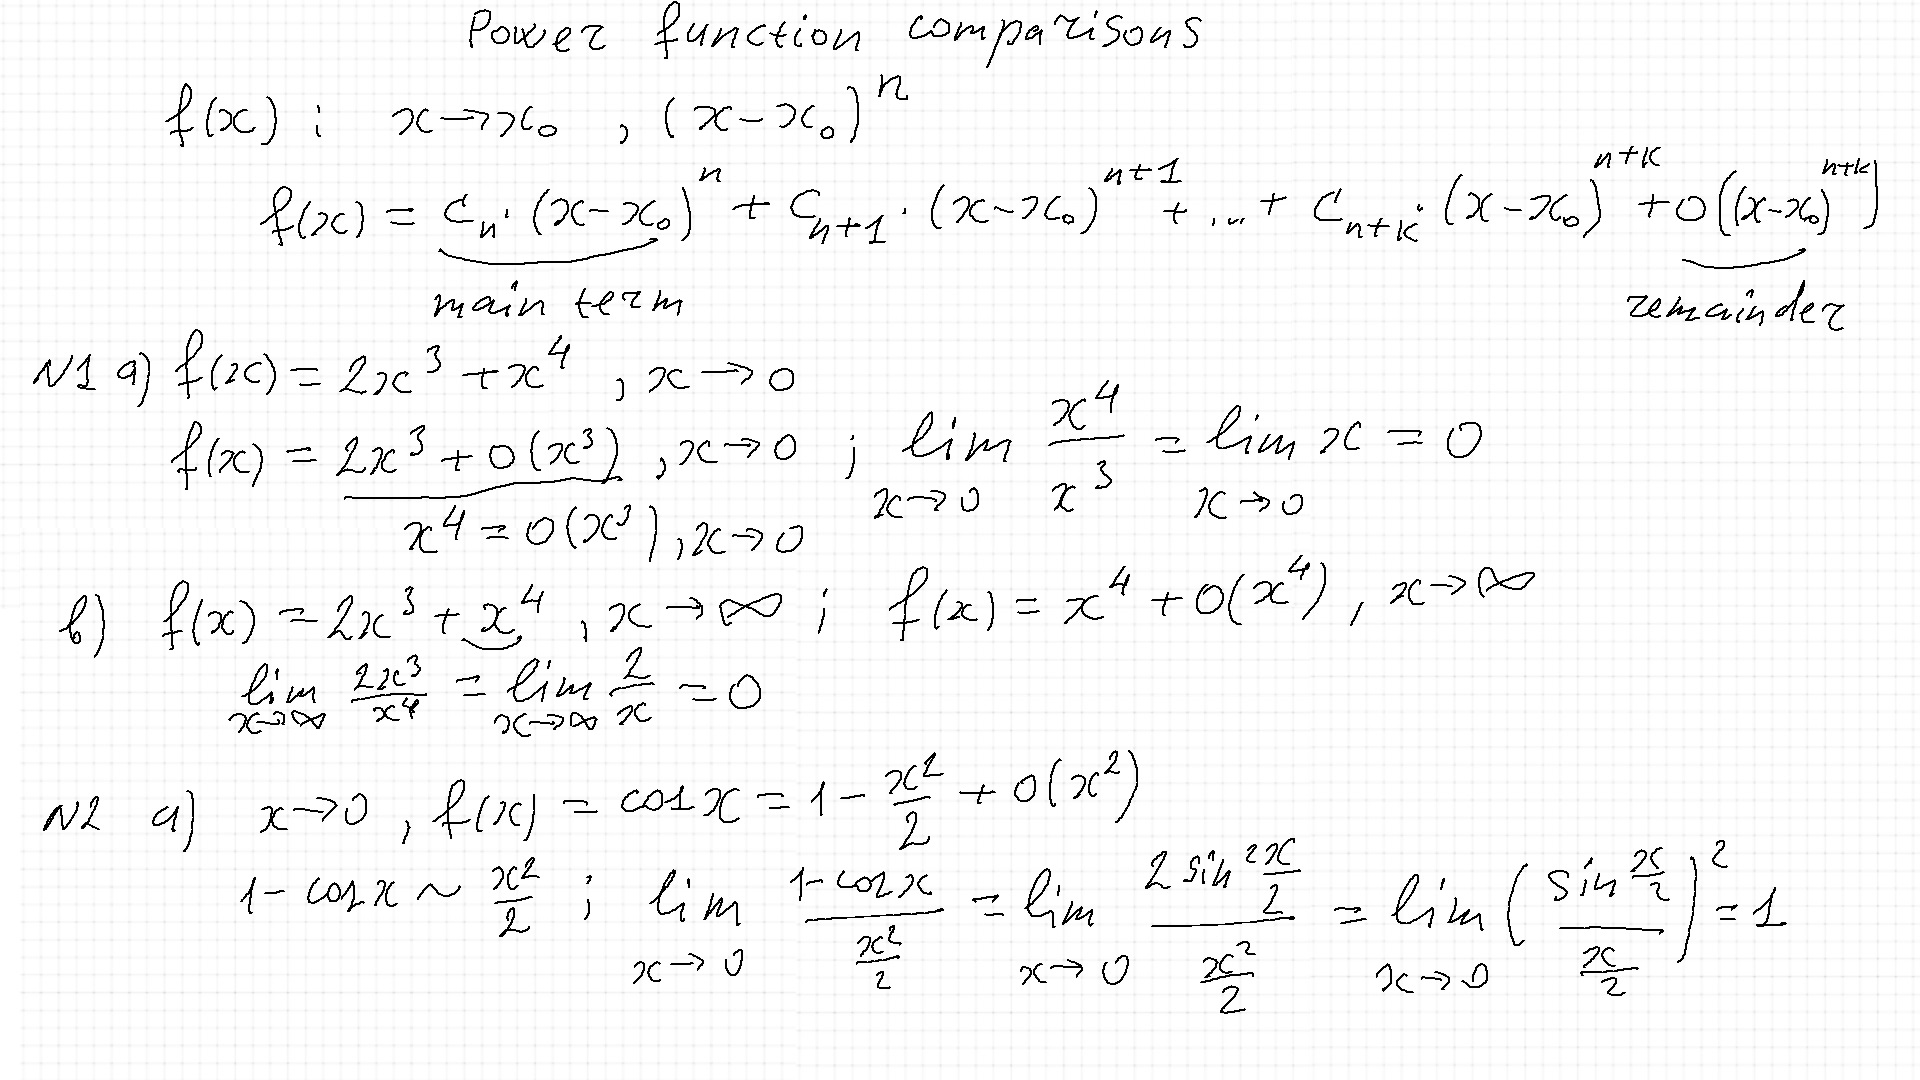 Power function comparisons
f(x) ; x→x₀ , (x-x₀)ⁿ
f(x) = Cₙ·(x-x₀)ⁿ + Cₙ₊₁·(x-x₀)ⁿ⁺¹ + ... + Cₙ₊ₖ·(x-x₀)ⁿ⁺ᵏ + o((x-x₀)ⁿ⁺ᵏ)
main term remainder
N1 a) f(x) = 2x³ + x⁴ , x→0
f(x) = 2x³ + o(x³) , x→0 ; lim x→0 x⁴/x³ = lim x→0 x = 0
x⁴ = o(x³) , x→0
b) f(x) = 2x³ + x⁴ , x→∞ ; f(x) = x⁴ + o(x⁴) , x→∞
lim x→∞ 2x³/x⁴ = lim x→∞ 2/x = 0
N2 a) x→0 , f(x) = cos x = 1 - x²/2 + o(x²)
1 - cos x ~ x²/2 ; lim x→0 (1-cos x)/(x²/2) = lim x→0 (2 sin² x/2)/(x²/2) = lim x→0 ((sin x/2)/(x/2))² = 1